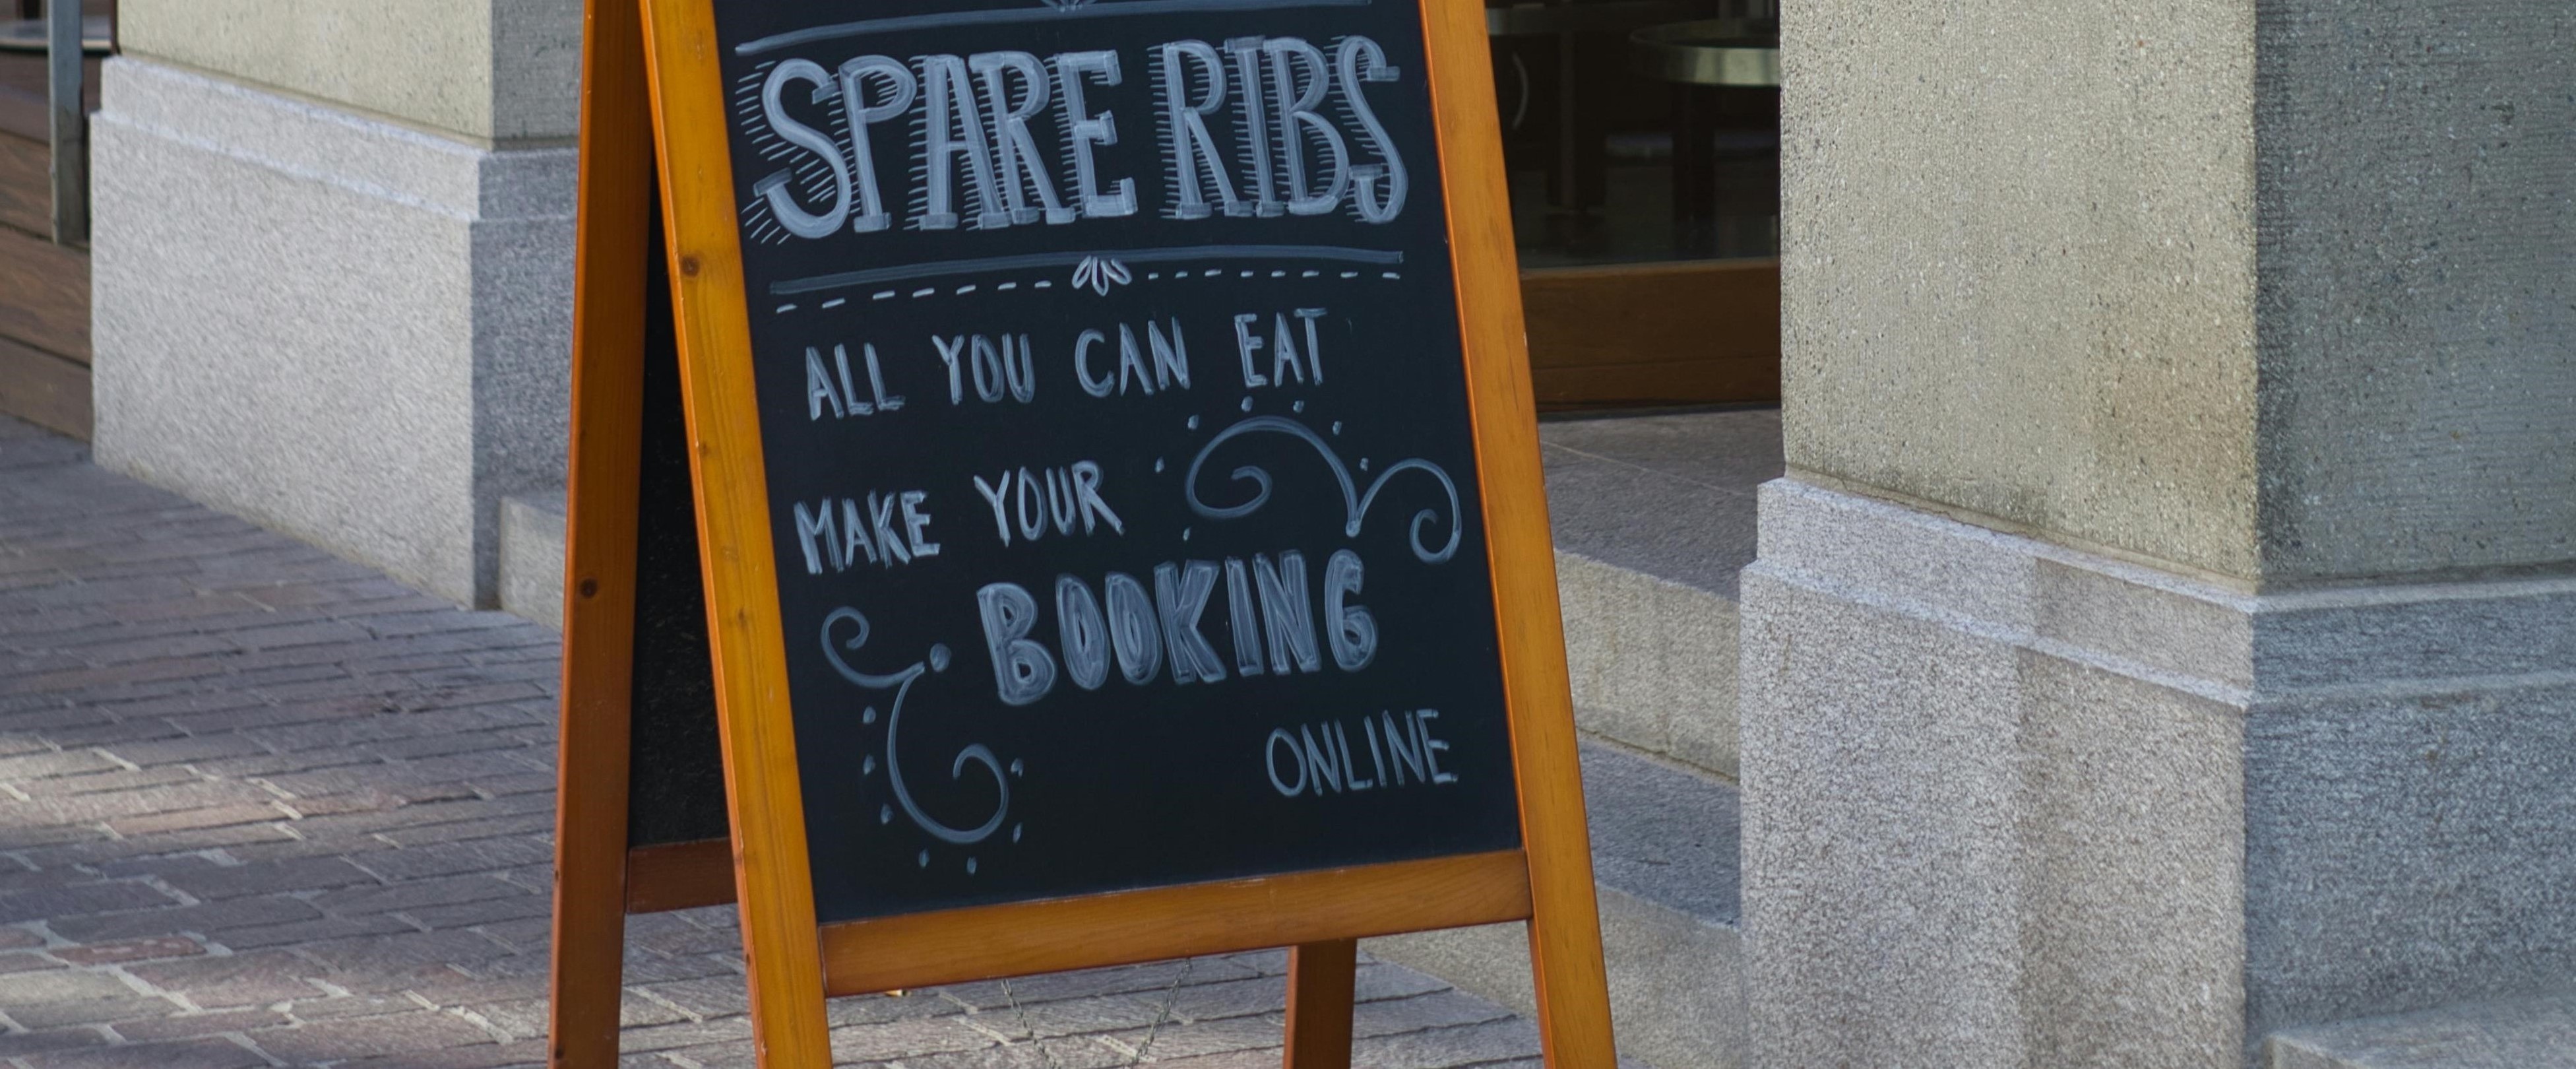 SPARE RIBS
ALL YOU CAN EAT
MAKE YOUR
BOOKING
ONLINE